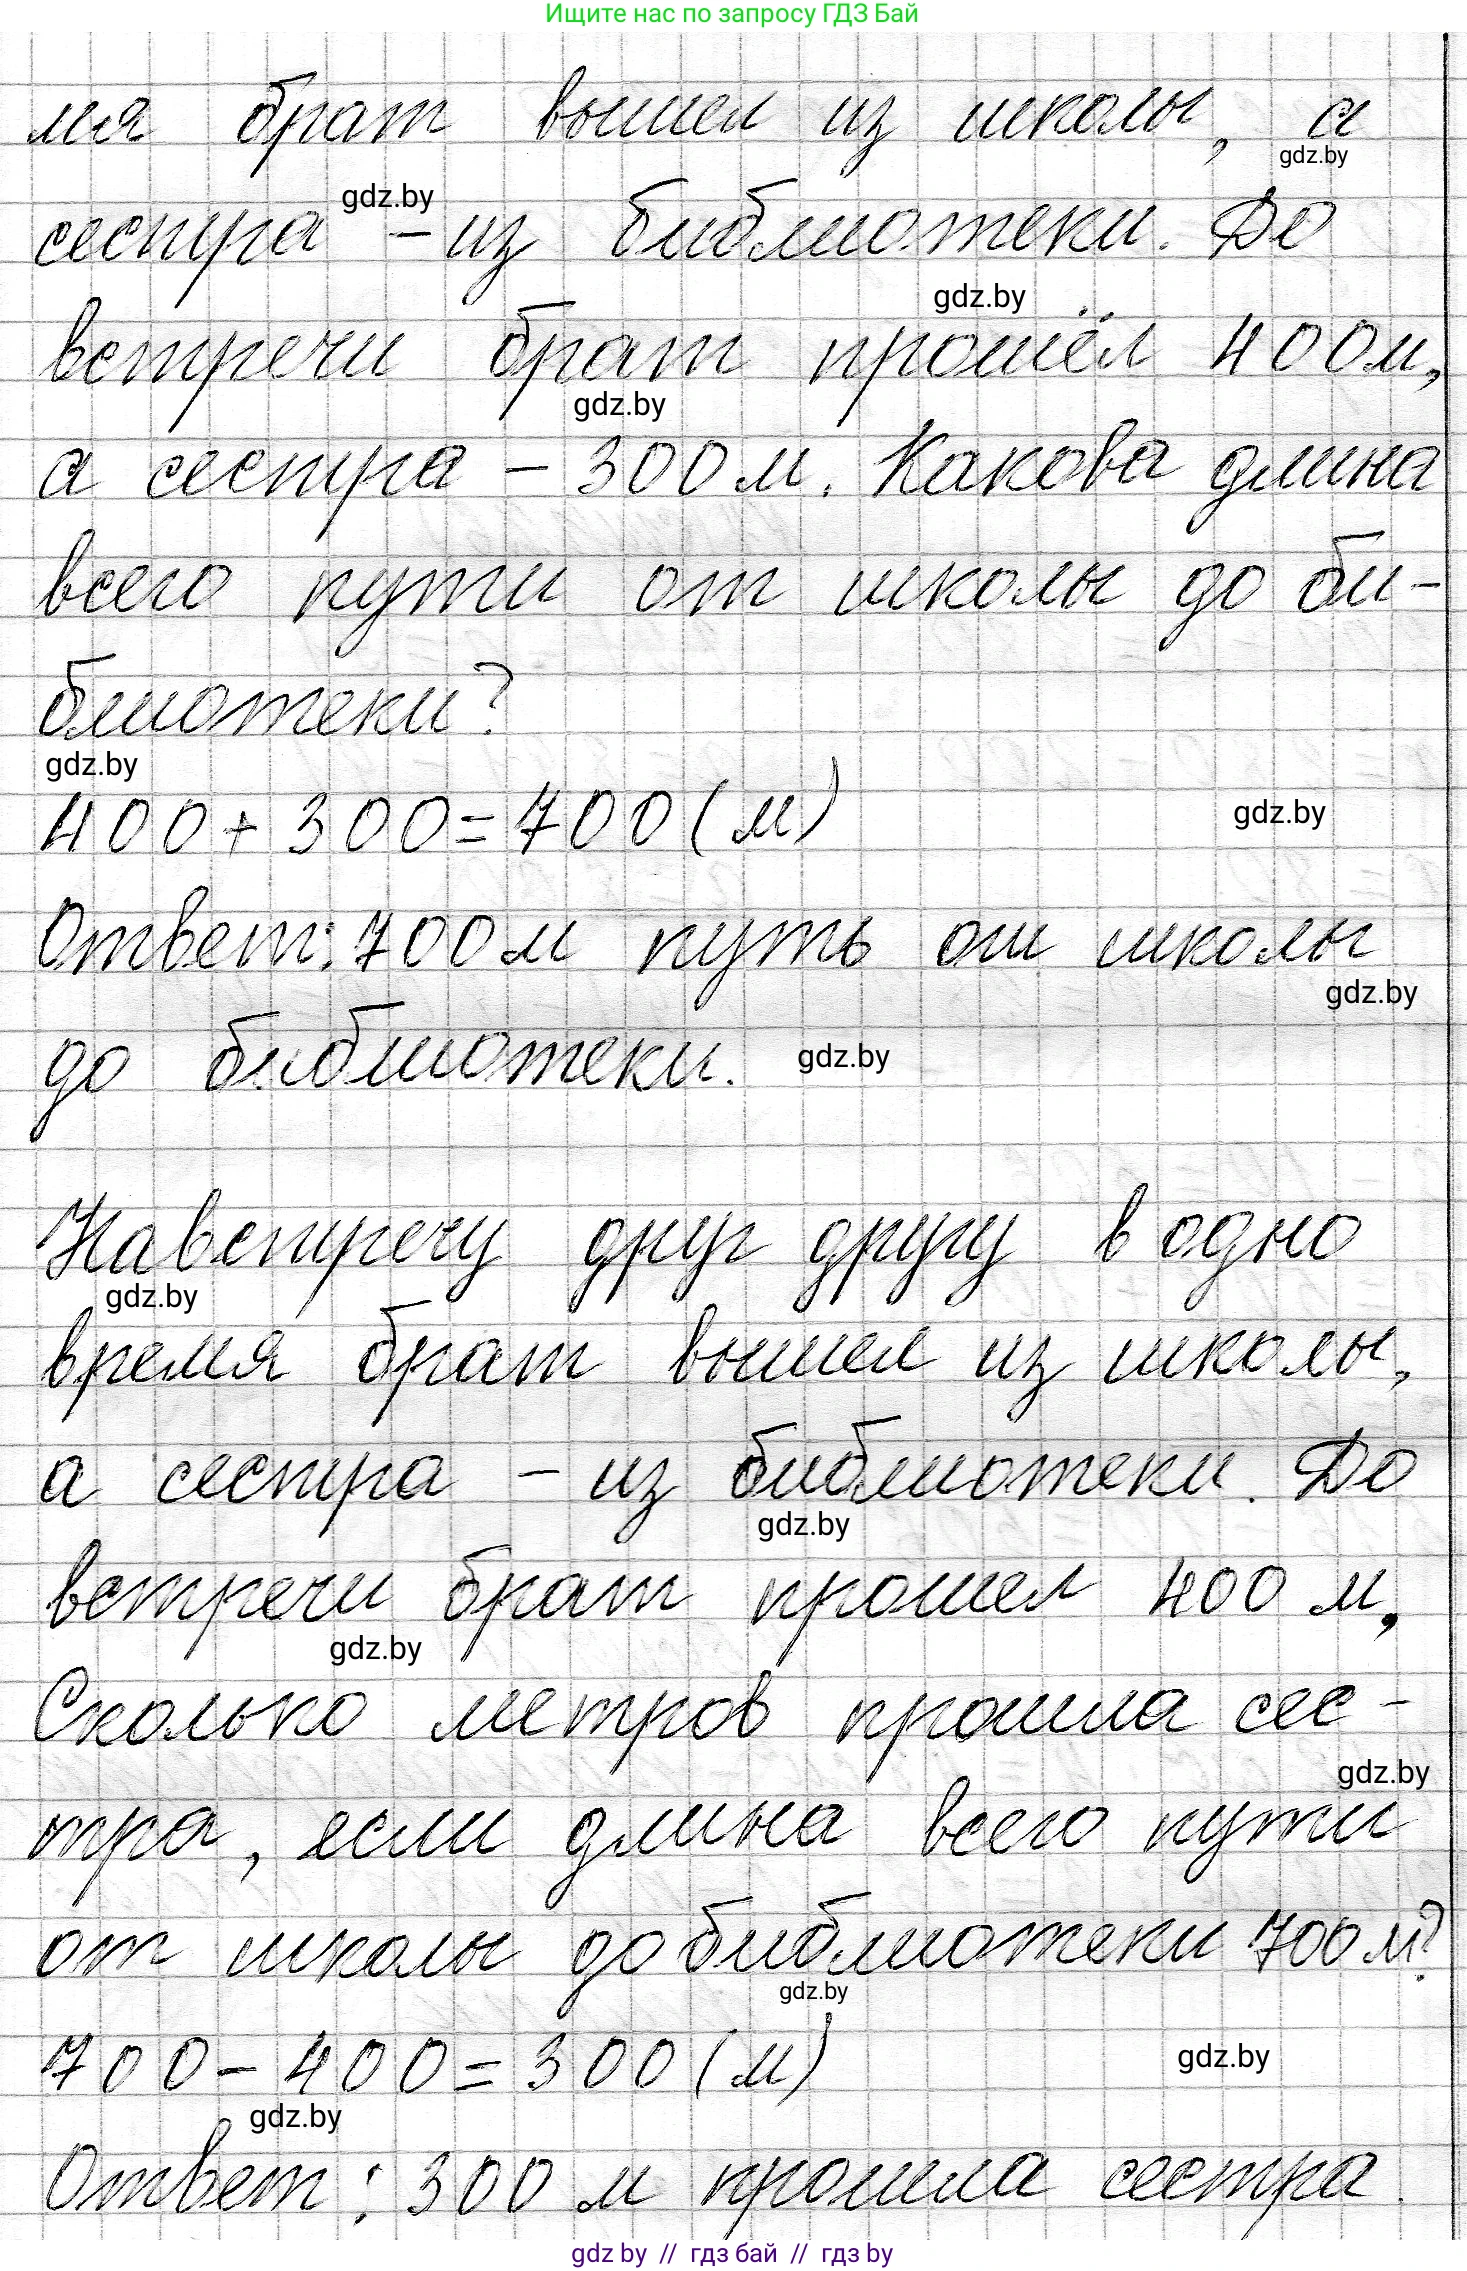 Ищите нас по запросу ГДЗ Бай
мя брат вышел из школы, а
gdz.by
gdz.by
сестра – из библиотеки. До
gdz.by
встречи брат прошёл 400 м,
gdz.by
а сестра – 300 м. Какова длина
всего пути от школы до би-
блиотеки?
gdz.by
400 + 300 = 700 (м)
gdz.by
Ответ: 700 м путь от школы
gdz.by
до библиотеки.
gdz.by
Навстречу друг другу в одно
gdz.by
время брат вышел из школы,
а сестра – из библиотеки. До
gdz.by
встречи брат прошел 400 м,
gdz.by
Сколько метров прошла сес-
gdz.by
тра, если длина всего пути
от школы до библиотеки 700 м?
gdz.by
700 – 400 = 300 (м)
gdz.by
gdz.by
Ответ: 300 м прошла сестра.
gdz by // гдз бай // гдз by